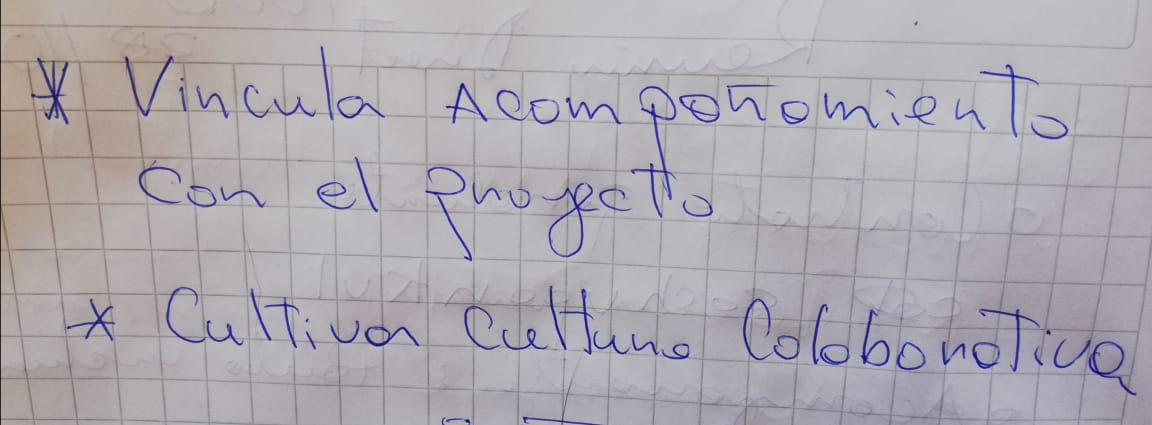 * Vincula Acompañamiento
Con el Proyecto
* Cultivar Cultura Colaborativa